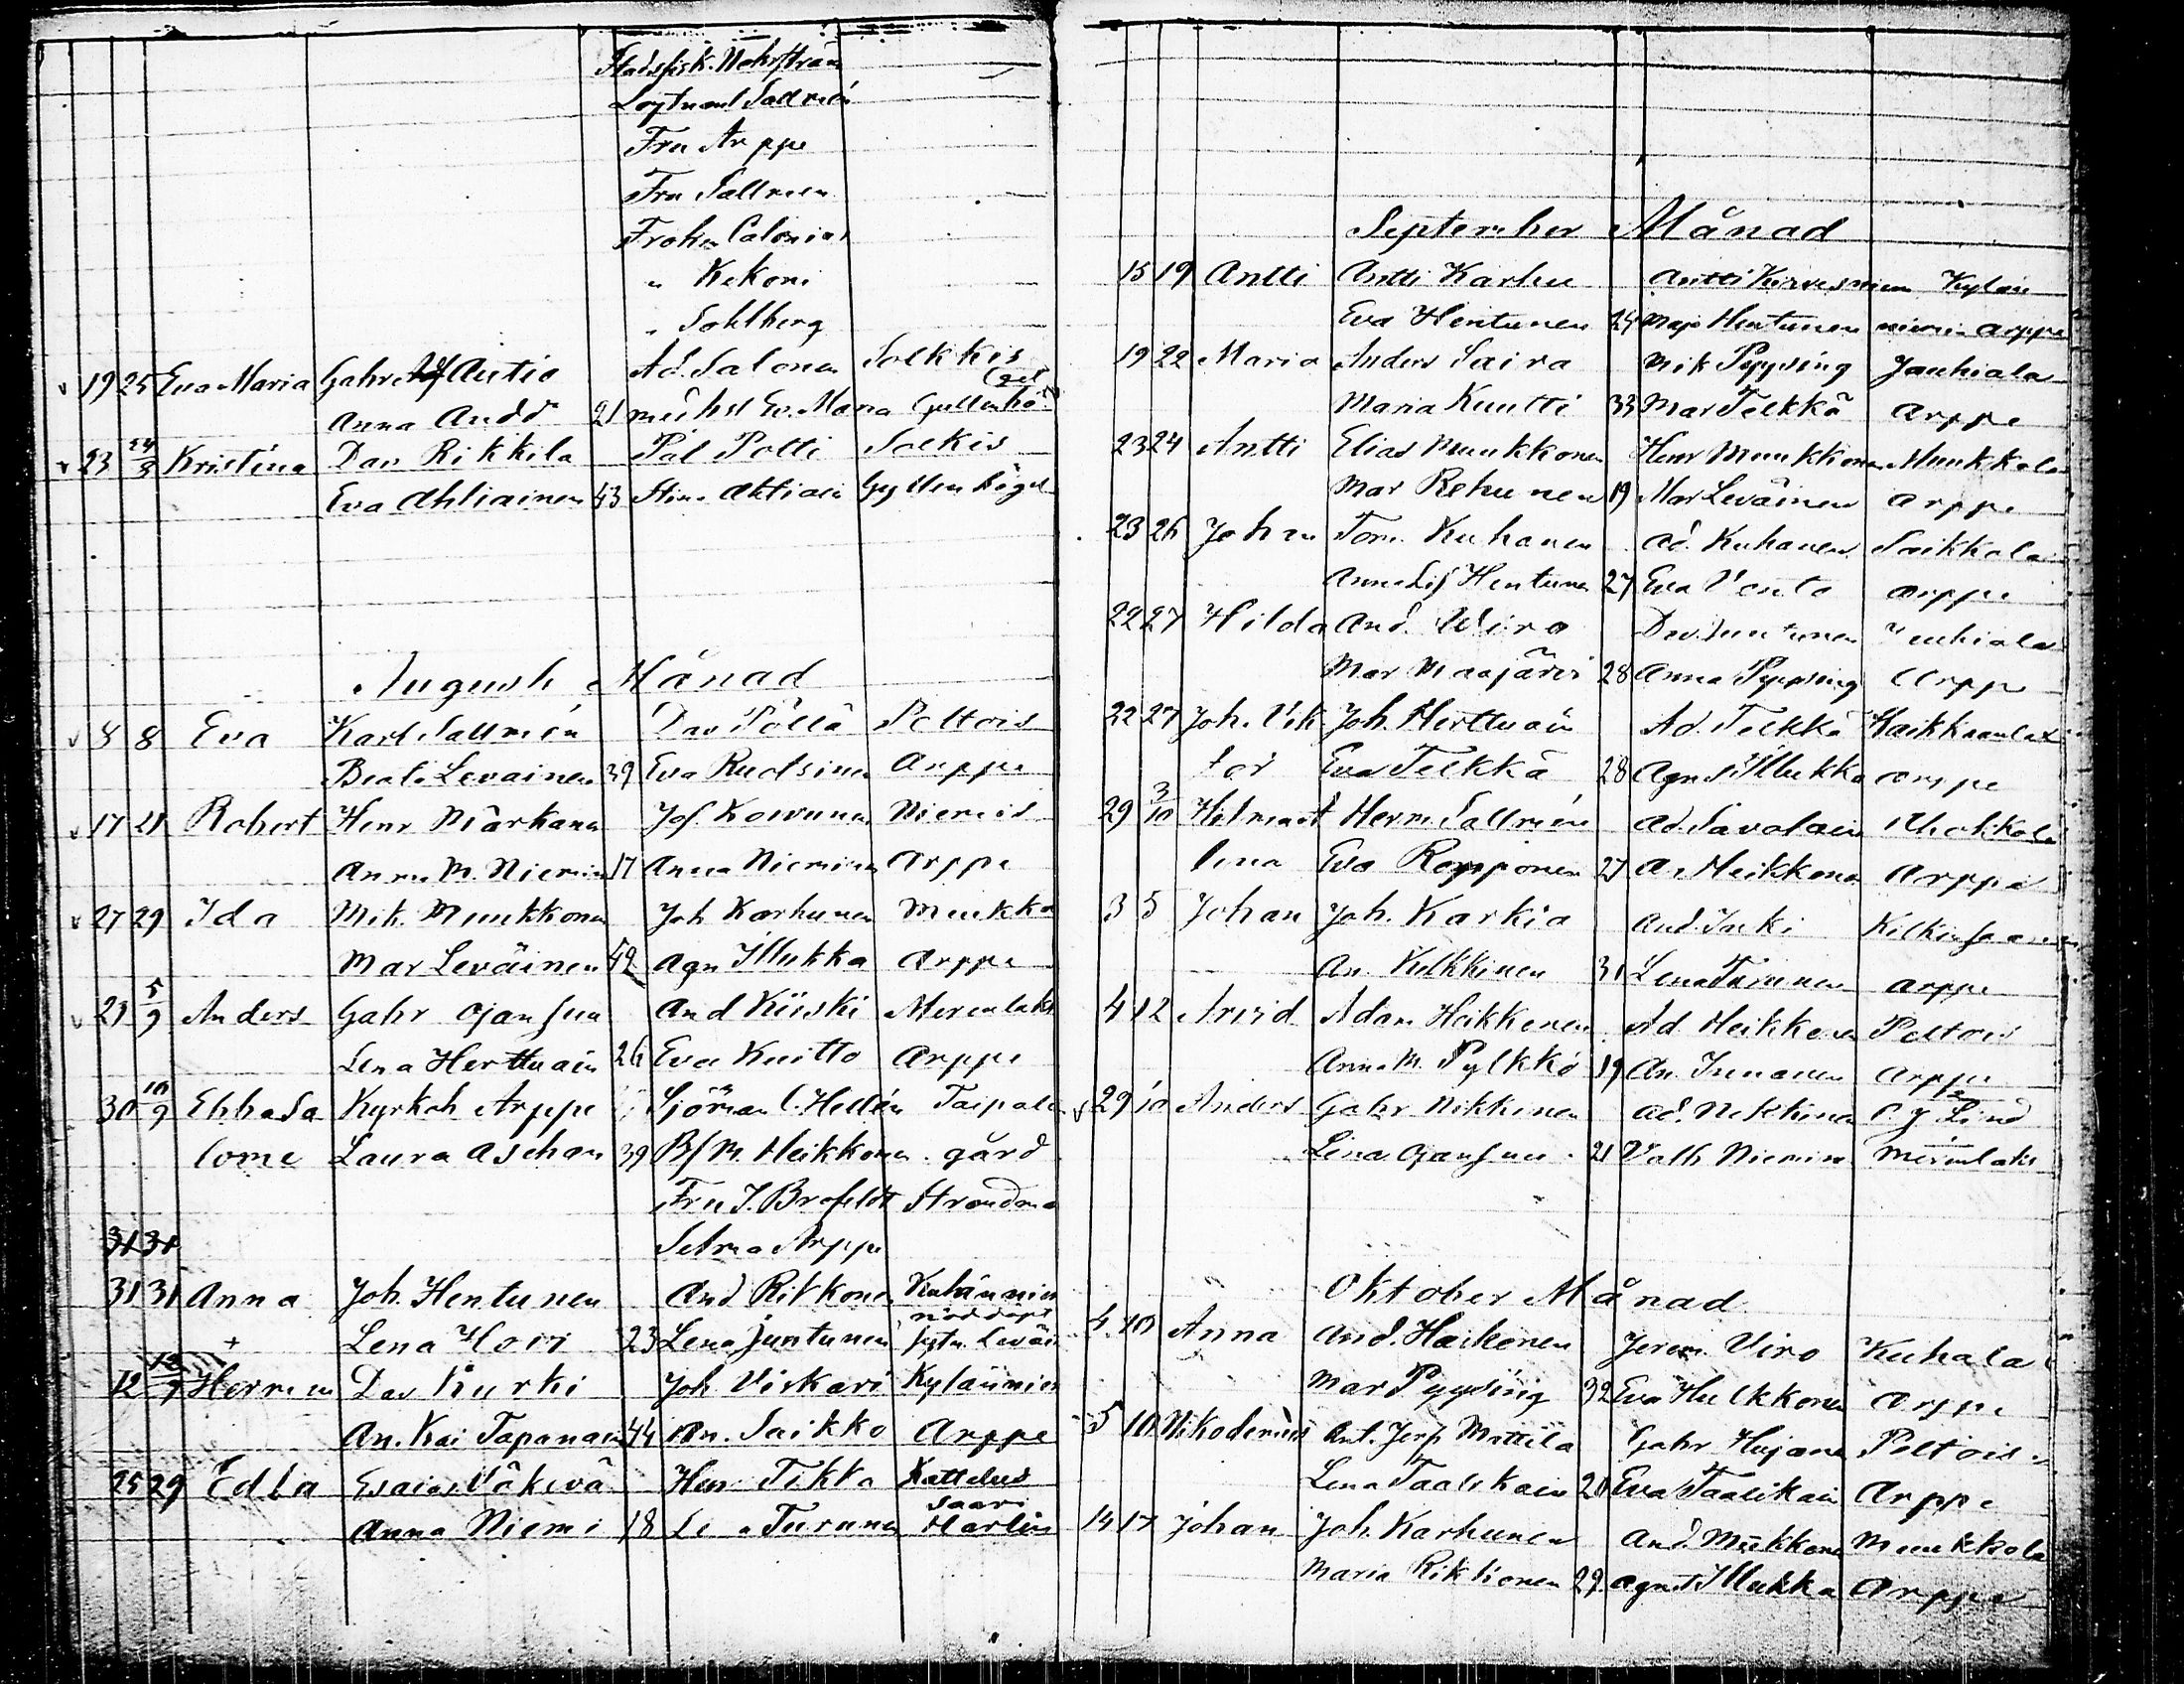 Fru Arppe
Fru Sallmen
Fröken Calonius
" Kekoni
" Sohlberg
19 25 Eva Maria Gabr Autio Ad. Salonen Solkkis
Anna Andd 21 Ev. Maria Gyllenbög
23 24/8 Kristina Dav Rikkila Pål Potti Solkis
Eva Ahtiainen 43 Stina Ahtiain Gyllenbögel
August Månad
8 Eva Karl Sallmén Dav Pöllä Peltois
Beata Levainen 39 Eva Ruotsinen Arppe
17 21 Robert Henr Märkänen Jos. Kovvunen Niemis
Anna M. Niemin 17 Anna Nieminen Arppe
27 29 Ida Mik. Muukkonen Joh Karhunen Muukko
Mar Leväinen 42 Agn Illukka Arppe
23 5/9 Anders Gabr Ojansuu And Kiiski Merenlaks
Lena Herttuain 26 Eva Kuitto Arppe
30 10/9 Ebba Sa Kyrkoh Arppe Sjöman C. Hellén Taipale
lome Laura Aschan 39 Bf M. Heikkonen gård
Fru J. Brofeldt Strandma
31 31
Selma Arppe
31 31 Anna Joh. Hentunen And Rikkone Kuhänmien
nöddöpt
+ Lena Hovi 23 Lena Juntunen Jytn. Leväi
12 12/9 Herman Dav Kurki Joh Viskari Kylänmien
An. Kai Tapanain 44 An. Saikko Arppe
25 29 Edla Esaias Väkevä Henr Tikka Kattelus
saari
Anna Niemi 18 Le a Turunen Harlin
September Månad
15 19 Antti Antti Karhu Antti Kirvesniem Kylän
Eva Hentunen 24 Maja Hentunen niemi Arppe
19 22 Maria Anders Saira Mik Pyysing Jauhiala
Maria Kuutti 33 Mar Telkkä Arppe
23 24 Antti Elias Muukkonen Henr Muukkonen Muukkola
Mar Rehunen 19 Mar Leväinen Arppe
23 26 Johan Tom. Kuhanen Ad. Kuhanen Saikkala
Anna Lis Hentunen 27 Eva Vento Arppe
22 27 Hilda And. Wiro Dav. Juntunen Jauhiala
Mar Maajärvi 28 Anna Pyysing Arppe
22 27 Joh. Vik Joh. Herttuain Ad. Telkkä Kaikkaala
tor Eva Telkkä 28 Agnes Illukka Arppe
29 3/10 Helena Herm. Sallmén Ad. Savolain Uhokkala
lina Eva Ropponen 27 A. Heikkonen Arppe
3 5 Johan Joh. Karkia And. Inki Kilkinsaaren
An. Kilkkinen 31 Lena Turunen Arppe
4 12 Arvid Adam Heikkonen Ad. Heikkonen Peltois
Anna M. Pylkkö 19 An. Innanen Arppe
29 10 Anders Gabr Nikkinen Ad. Nikkinen P. J. Lind
Lena Ojansuu 21 Valb Niemin Merenlahti
Oktober Månad
4 10 Anna And. Haikonen Jerem. Viro Kuhala
Mar Pyysing 32 Eva Hulkkonen Arppe
5 10 Nikodemus Ant. Jerp Mattila Gabr Hujanen Peltois
Lena Taalikain 20 Eva Taalikain Arppe
14 17 Johan Joh. Karhunen And. Mukkonen Muukkola
Maria Rikkonen 29 Agnes Illukka Arppe